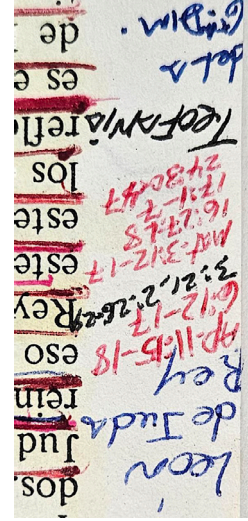 León
de Juda
Rey
Ap. 11:15-18
6:12-17
3:21, 2:26-29
Mat. 3:12-17
16:27-28
17:1-7
24:30-47
TEOFANIA
de LA
dos,
Jud
rein
eso
Rey
este
este
los
refle
es e
de